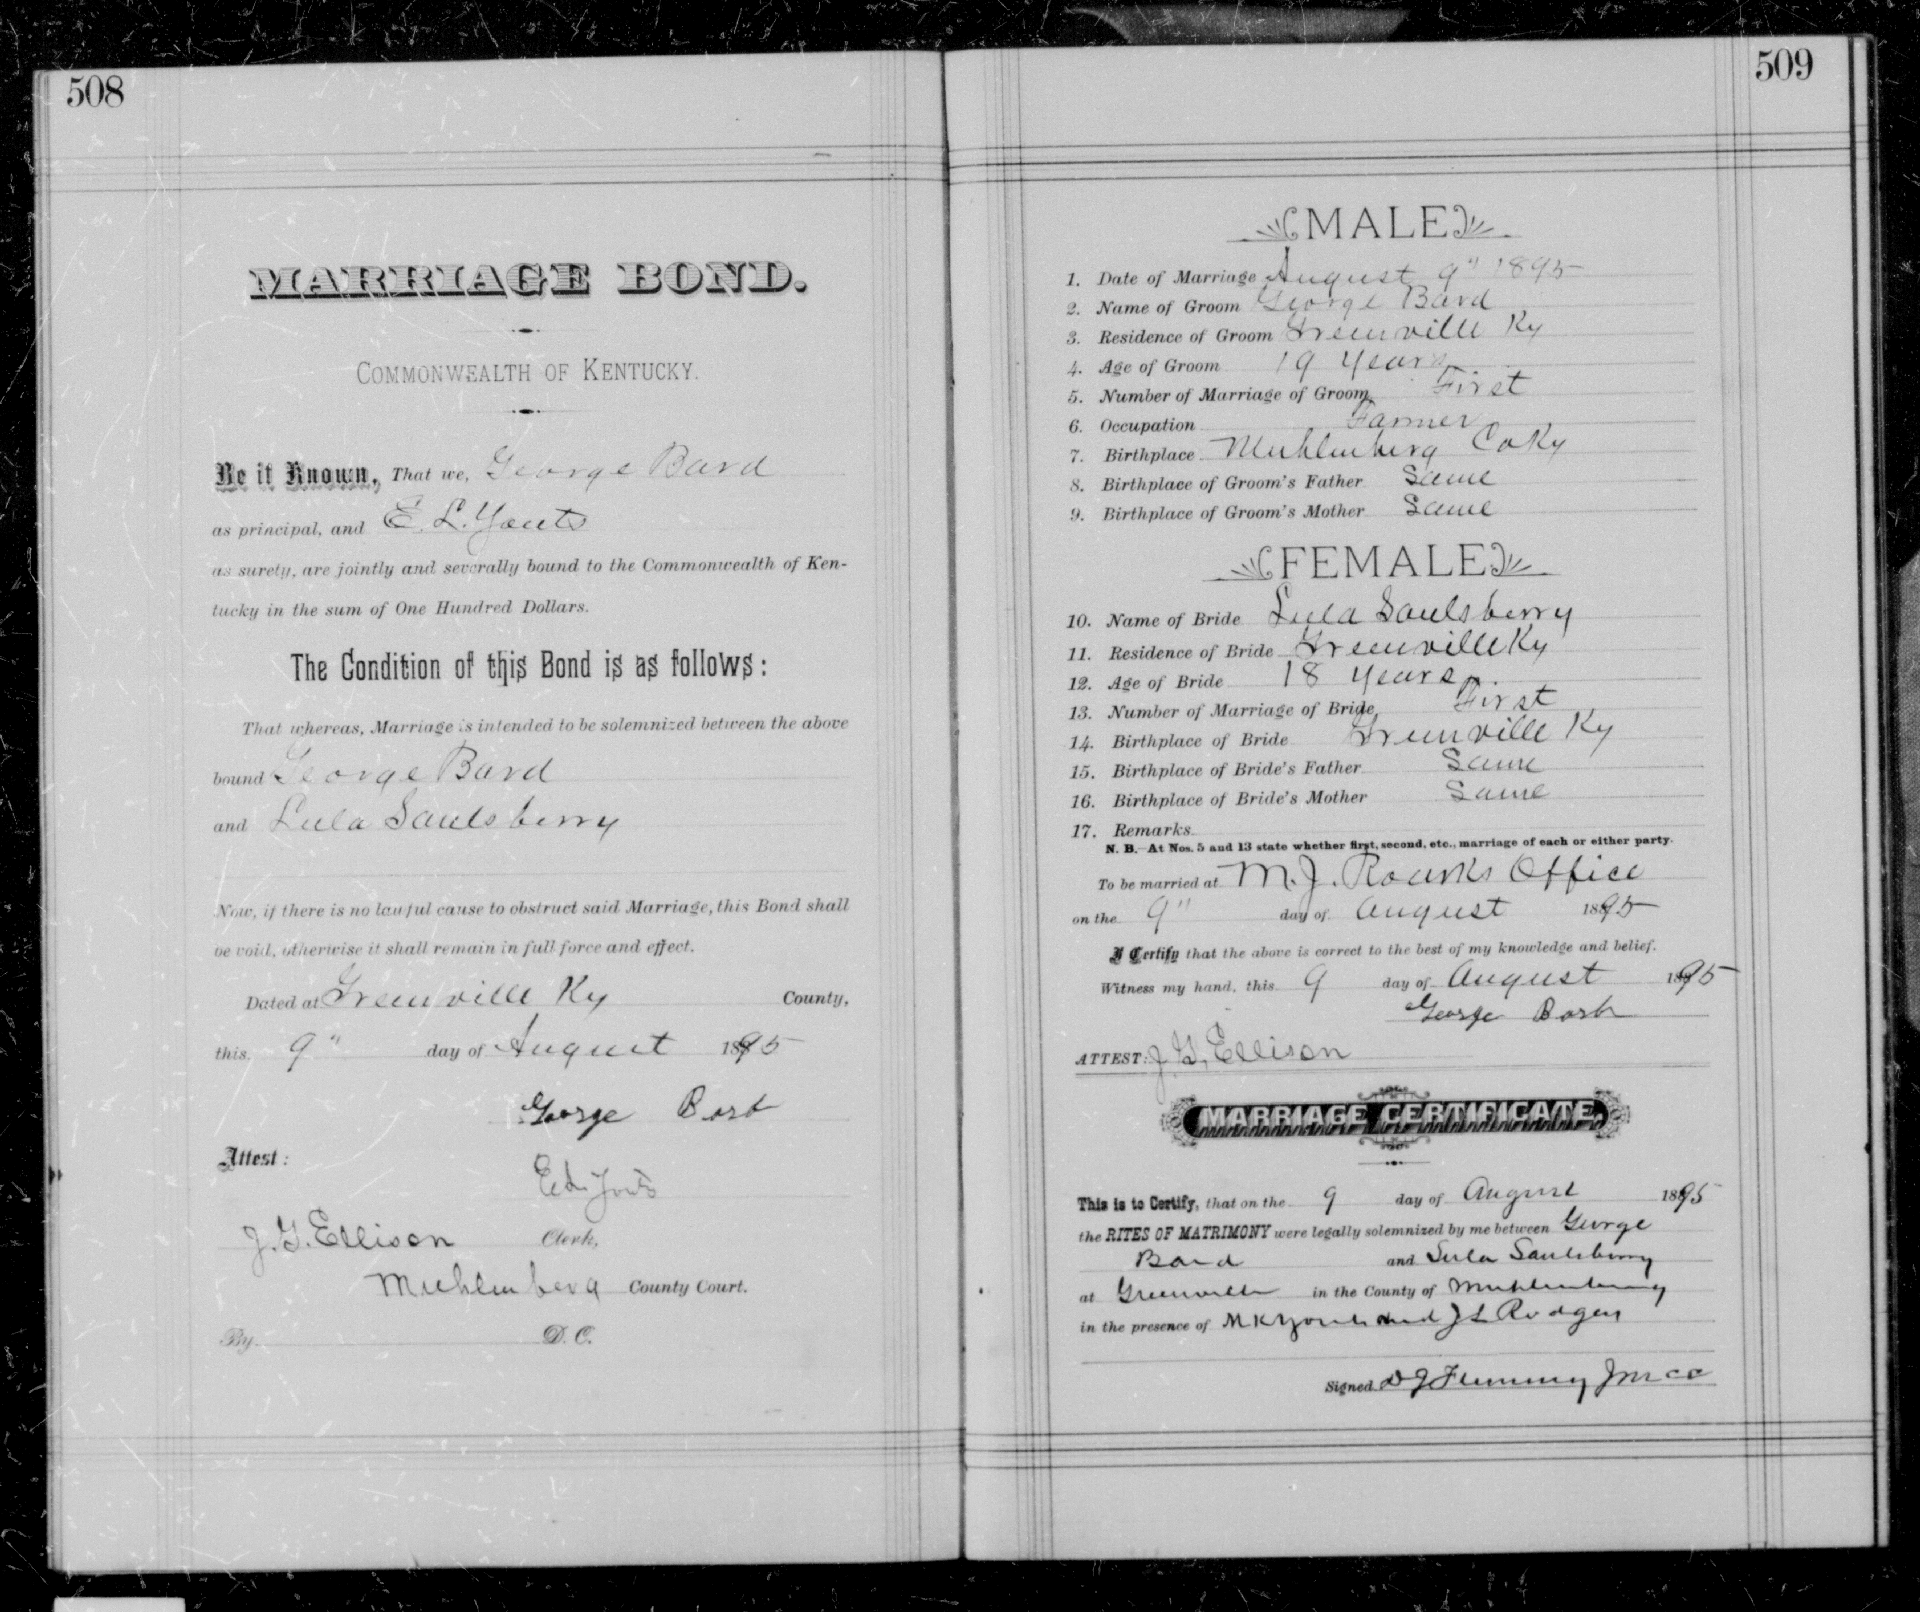 508
MARRIAGE BOND.
COMMONWEALTH OF KENTUCKY.
Be it Known, That we, George Bard
as principal, and E. L. Yonts
as surety, are jointly and severally bound to the Commonwealth of Ken-
tucky in the sum of One Hundred Dollars.
The Condition of this Bond is as follows:
That whereas, Marriage is intended to be solemnized between the above
bound George Bard
and Lula Saulsberry
Now, if there is no lawful cause to obstruct said Marriage, this Bond shall
be void, otherwise it shall remain in full force and effect.
Dated at Greenville Ky County,
this 9" day of August 1895
George
Attest:
J. G. Ellison Clerk,
Muhlenberg County Court.
By D. C.
509
MALE
1. Date of Marriage August 9" 1895
2. Name of Groom George Bard
3. Residence of Groom Greenville Ky
4. Age of Groom 19 Years
5. Number of Marriage of Groom First
6. Occupation Farmer
7. Birthplace Muhlenberg Co Ky
8. Birthplace of Groom's Father Same
9. Birthplace of Groom's Mother Same
FEMALE
10. Name of Bride Lula Saulsberry
11. Residence of Bride Greenville Ky
12. Age of Bride 18 Years
13. Number of Marriage of Bride First
14. Birthplace of Bride Greenville Ky
15. Birthplace of Bride's Father Same
16. Birthplace of Bride's Mother Same
17. Remarks
N. B.—At Nos. 5 and 13 state whether first, second, etc., marriage of each or either party.
To be married at M. J. Roarks Office
on the 9" day of August 1895
I Certify that the above is correct to the best of my knowledge and belief.
Witness my hand, this 9 day of August 1895
George
ATTEST: J. G. Ellison
MARRIAGE CERTIFICATE.
This is to Certify, that on the 9 day of August 1895
the RITES OF MATRIMONY were legally solemnized by me between George
Bard and Lula Saulsberry
at Greenville in the County of Muhlenberg
in the presence of M K Yonts and J L Rodgers
Signed D J Flemming